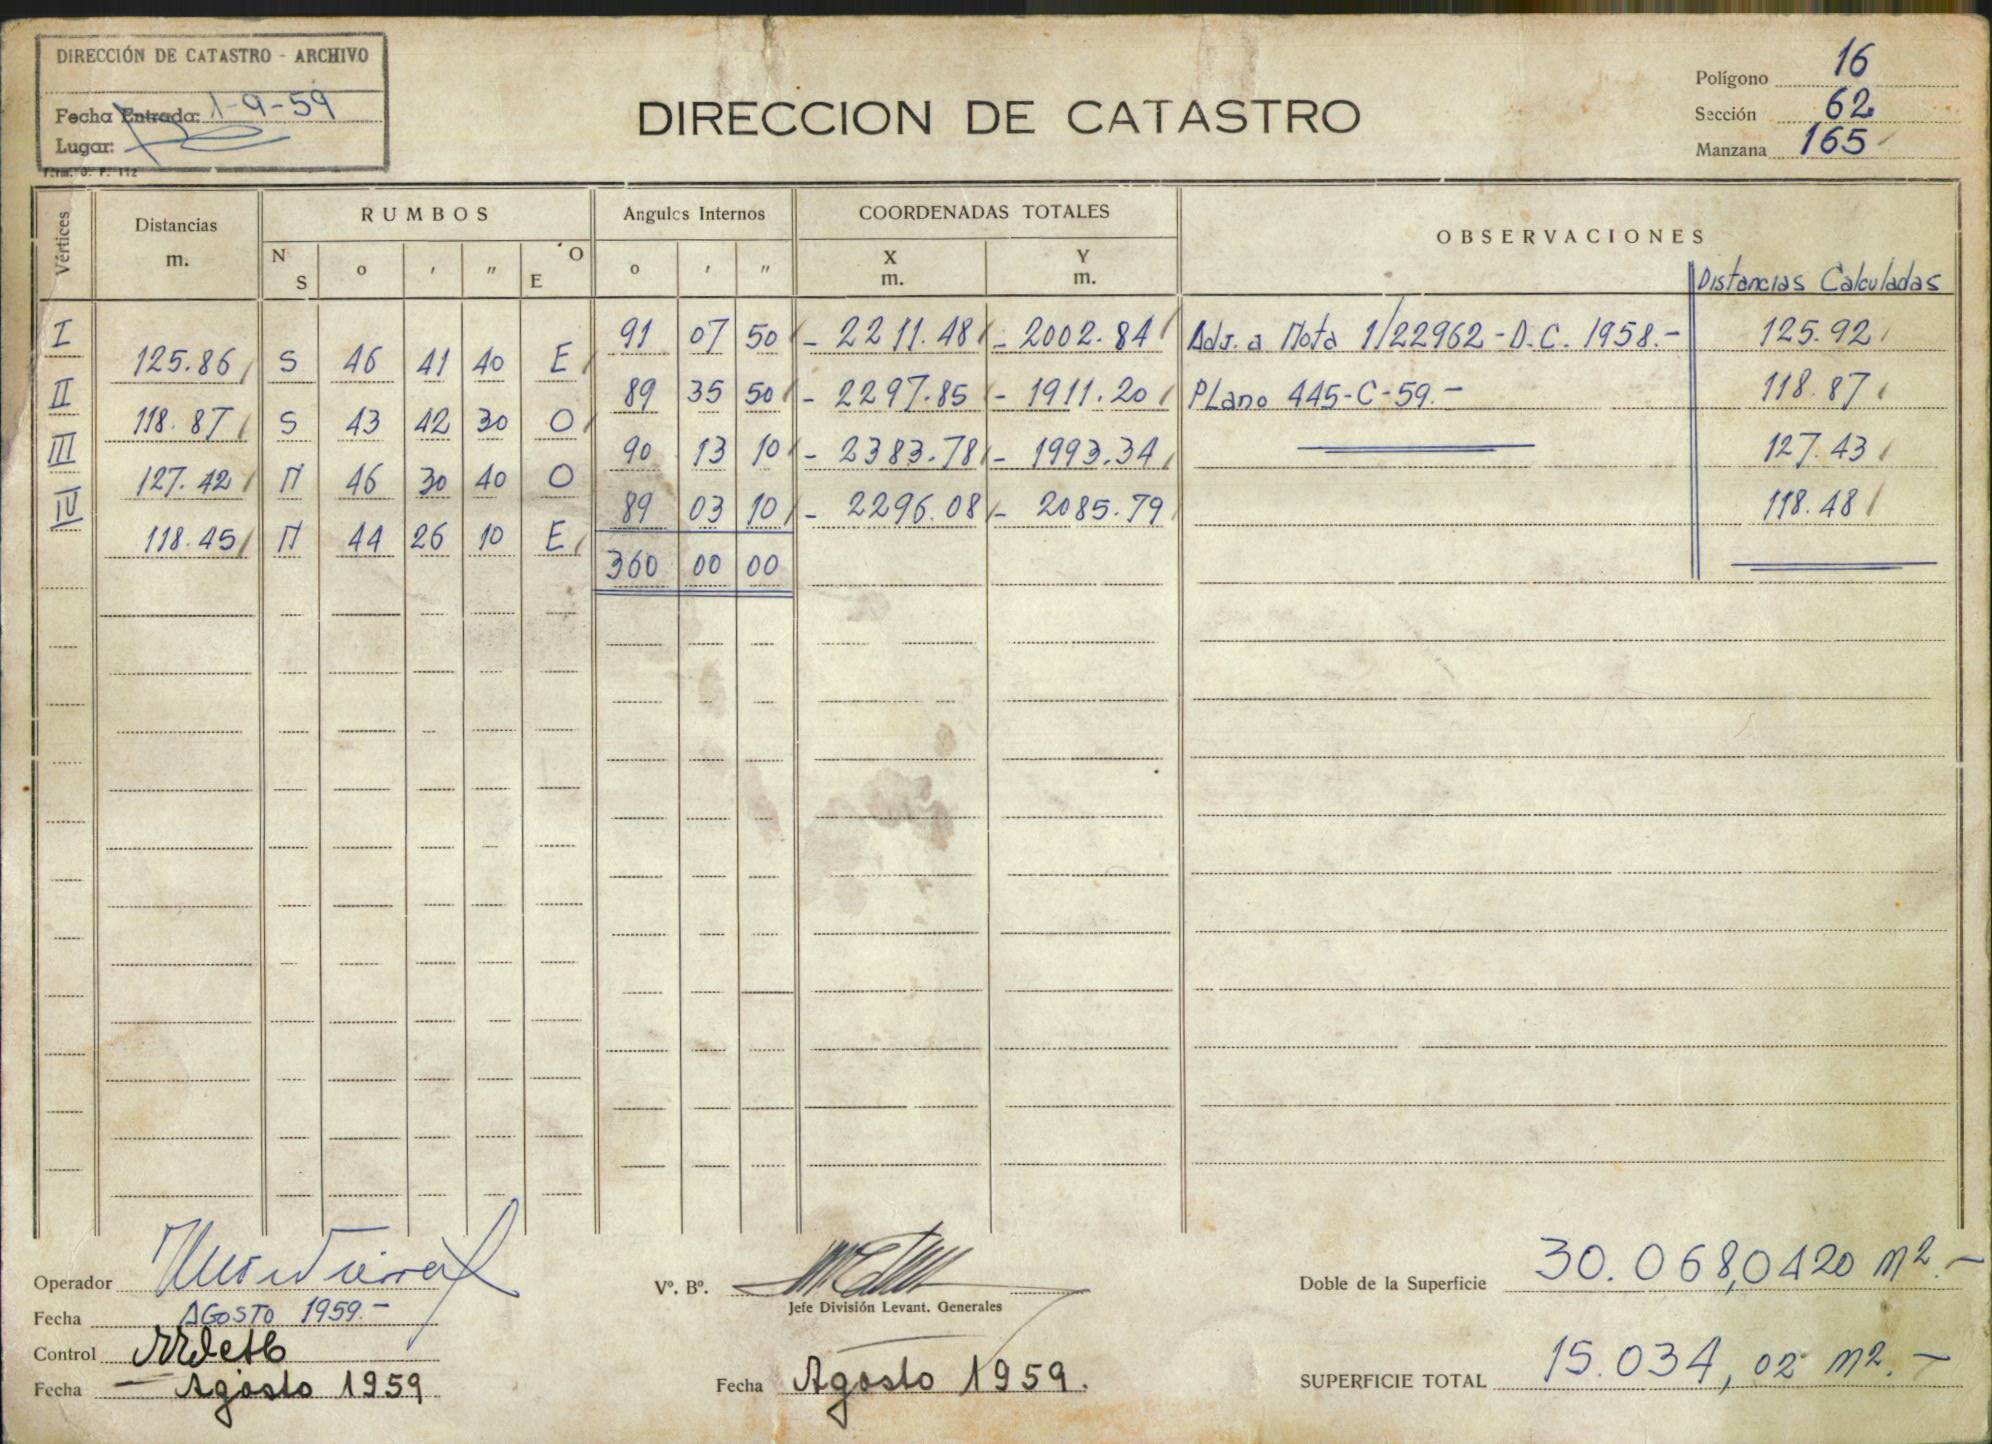 DIRECCIÓN DE CATASTRO - ARCHIVO
Fecha Entrada: 1-9-59
Lugar:
Form. O. P. 112
DIRECCION DE CATASTRO
Polígono 16
Sección 62
Manzana 165
Vértices
Distancias m.
RUMBOS
N S o ' " O E
Angulos Internos
o ' "
COORDENADAS TOTALES
X m. Y m.
OBSERVACIONES
Distancias Calculadas
I 91 07 50 - 2211.48 - 2002.84 Adj. a Nota 1/22962-D.C. 1958.- 125.92
125.86 S 46 41 40 E
II 89 35 50 - 2297.85 - 1911.20 Plano 445-C-59.- 118.87
118.87 S 43 42 30 O
III 90 13 10 - 2383.78 - 1993.34 127.43
127.42 N 46 30 40 O
IV 89 03 10 - 2296.08 - 2085.79 118.48
118.45 N 44 26 10 E
360 00 00
Operador
Fecha AGOSTO 1959.-
Control
Fecha Agosto 1959
Vº. Bº.
Jefe División Levant. Generales
Fecha Agosto 1959.
Doble de la Superficie 30.068,0420 m2.-
SUPERFICIE TOTAL 15.034,02 m2.-